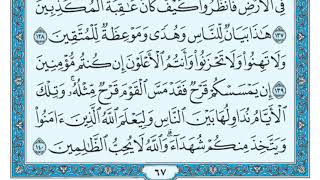 فِى الْأَرْضِ فَانظُرُوا كَيْفَ كَانَ عَٰقِبَةُ الْمُكَذِّبِينَ
١٣٧ هَٰذَا بَيَانٌ لِّلنَّاسِ وَهُدًى وَمَوْعِظَةٌ لِّلْمُتَّقِينَ ١٣٨
وَلَا تَهِنُوا وَلَا تَحْزَنُوا وَأَنتُمُ الْأَعْلَوْنَ إِن كُنتُم مُّؤْمِنِينَ
١٣٩ إِن يَمْسَسْكُمْ قَرْحٌ فَقَدْ مَسَّ الْقَوْمَ قَرْحٌ مِّثْلُهُۥ ۚ وَتِلْكَ
الْأَيَّامُ نُدَاوِلُهَا بَيْنَ النَّاسِ وَلِيَعْلَمَ اللَّهُ الَّذِينَ ءَامَنُوا
وَيَتَّخِذَ مِنكُمْ شُهَدَاءَ ۗ وَاللَّهُ لَا يُحِبُّ الظَّالِمِينَ ١٤٠
٦٧